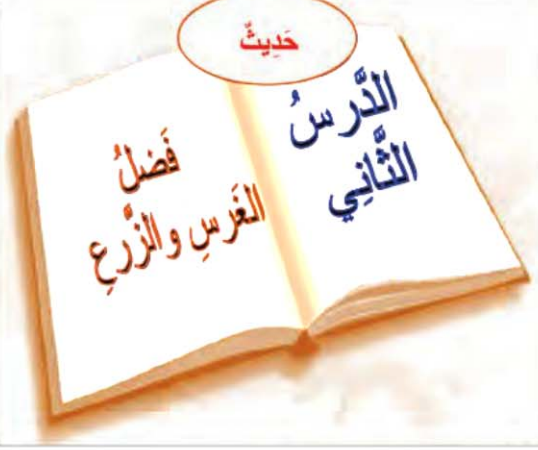 حَدِيثٌ
الدَّرسُ
الثَّانِي
فَضلُ
الغَرسِ والزَّرعِ